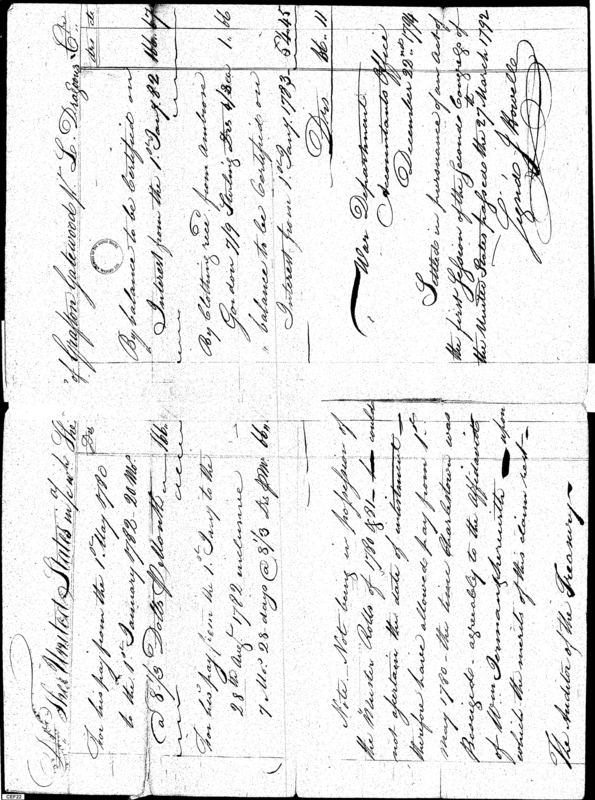 The United States in acct with The
Drs
For his pay from the 1st May 1780
to the 1st January 1782 20 Mos
@ 8 1/3 Dolls pr Month 166.
For his pay from the 1st Jany to the
28th Augt 1782 inclusive
7 Mos 28 days @ 8 1/3 Drs pr Mo 66.11
Note Not being in possession of
the Muster Rolls of 1780 & 81 could
not ascertain the date of inlistment
therefore have allowed pay from 1st
May 1780 the time Charlestown was
Beseiged agreeably to the Affidavit
of Wm herewith upon
which the merits of this claim rest
The Auditor of the Treasury
of Grafton Gatewood L Dragoons Cr
drs cts
By balance to be Certified on
Interest from the 1st Jany 82 166.
By Clothing reced from Ambrose
Gordon 7/9 Sterling Drs 1.66
balance to be Certified on
Interest from 1st Jany 1783 64.45
Drs 66.11
War Department
Accountants Office
December 22nd 1794
Settled in pursuance of an act of
the first Session of the second Congress of
the United States passed the 27 March 1792
Howell
CEF22